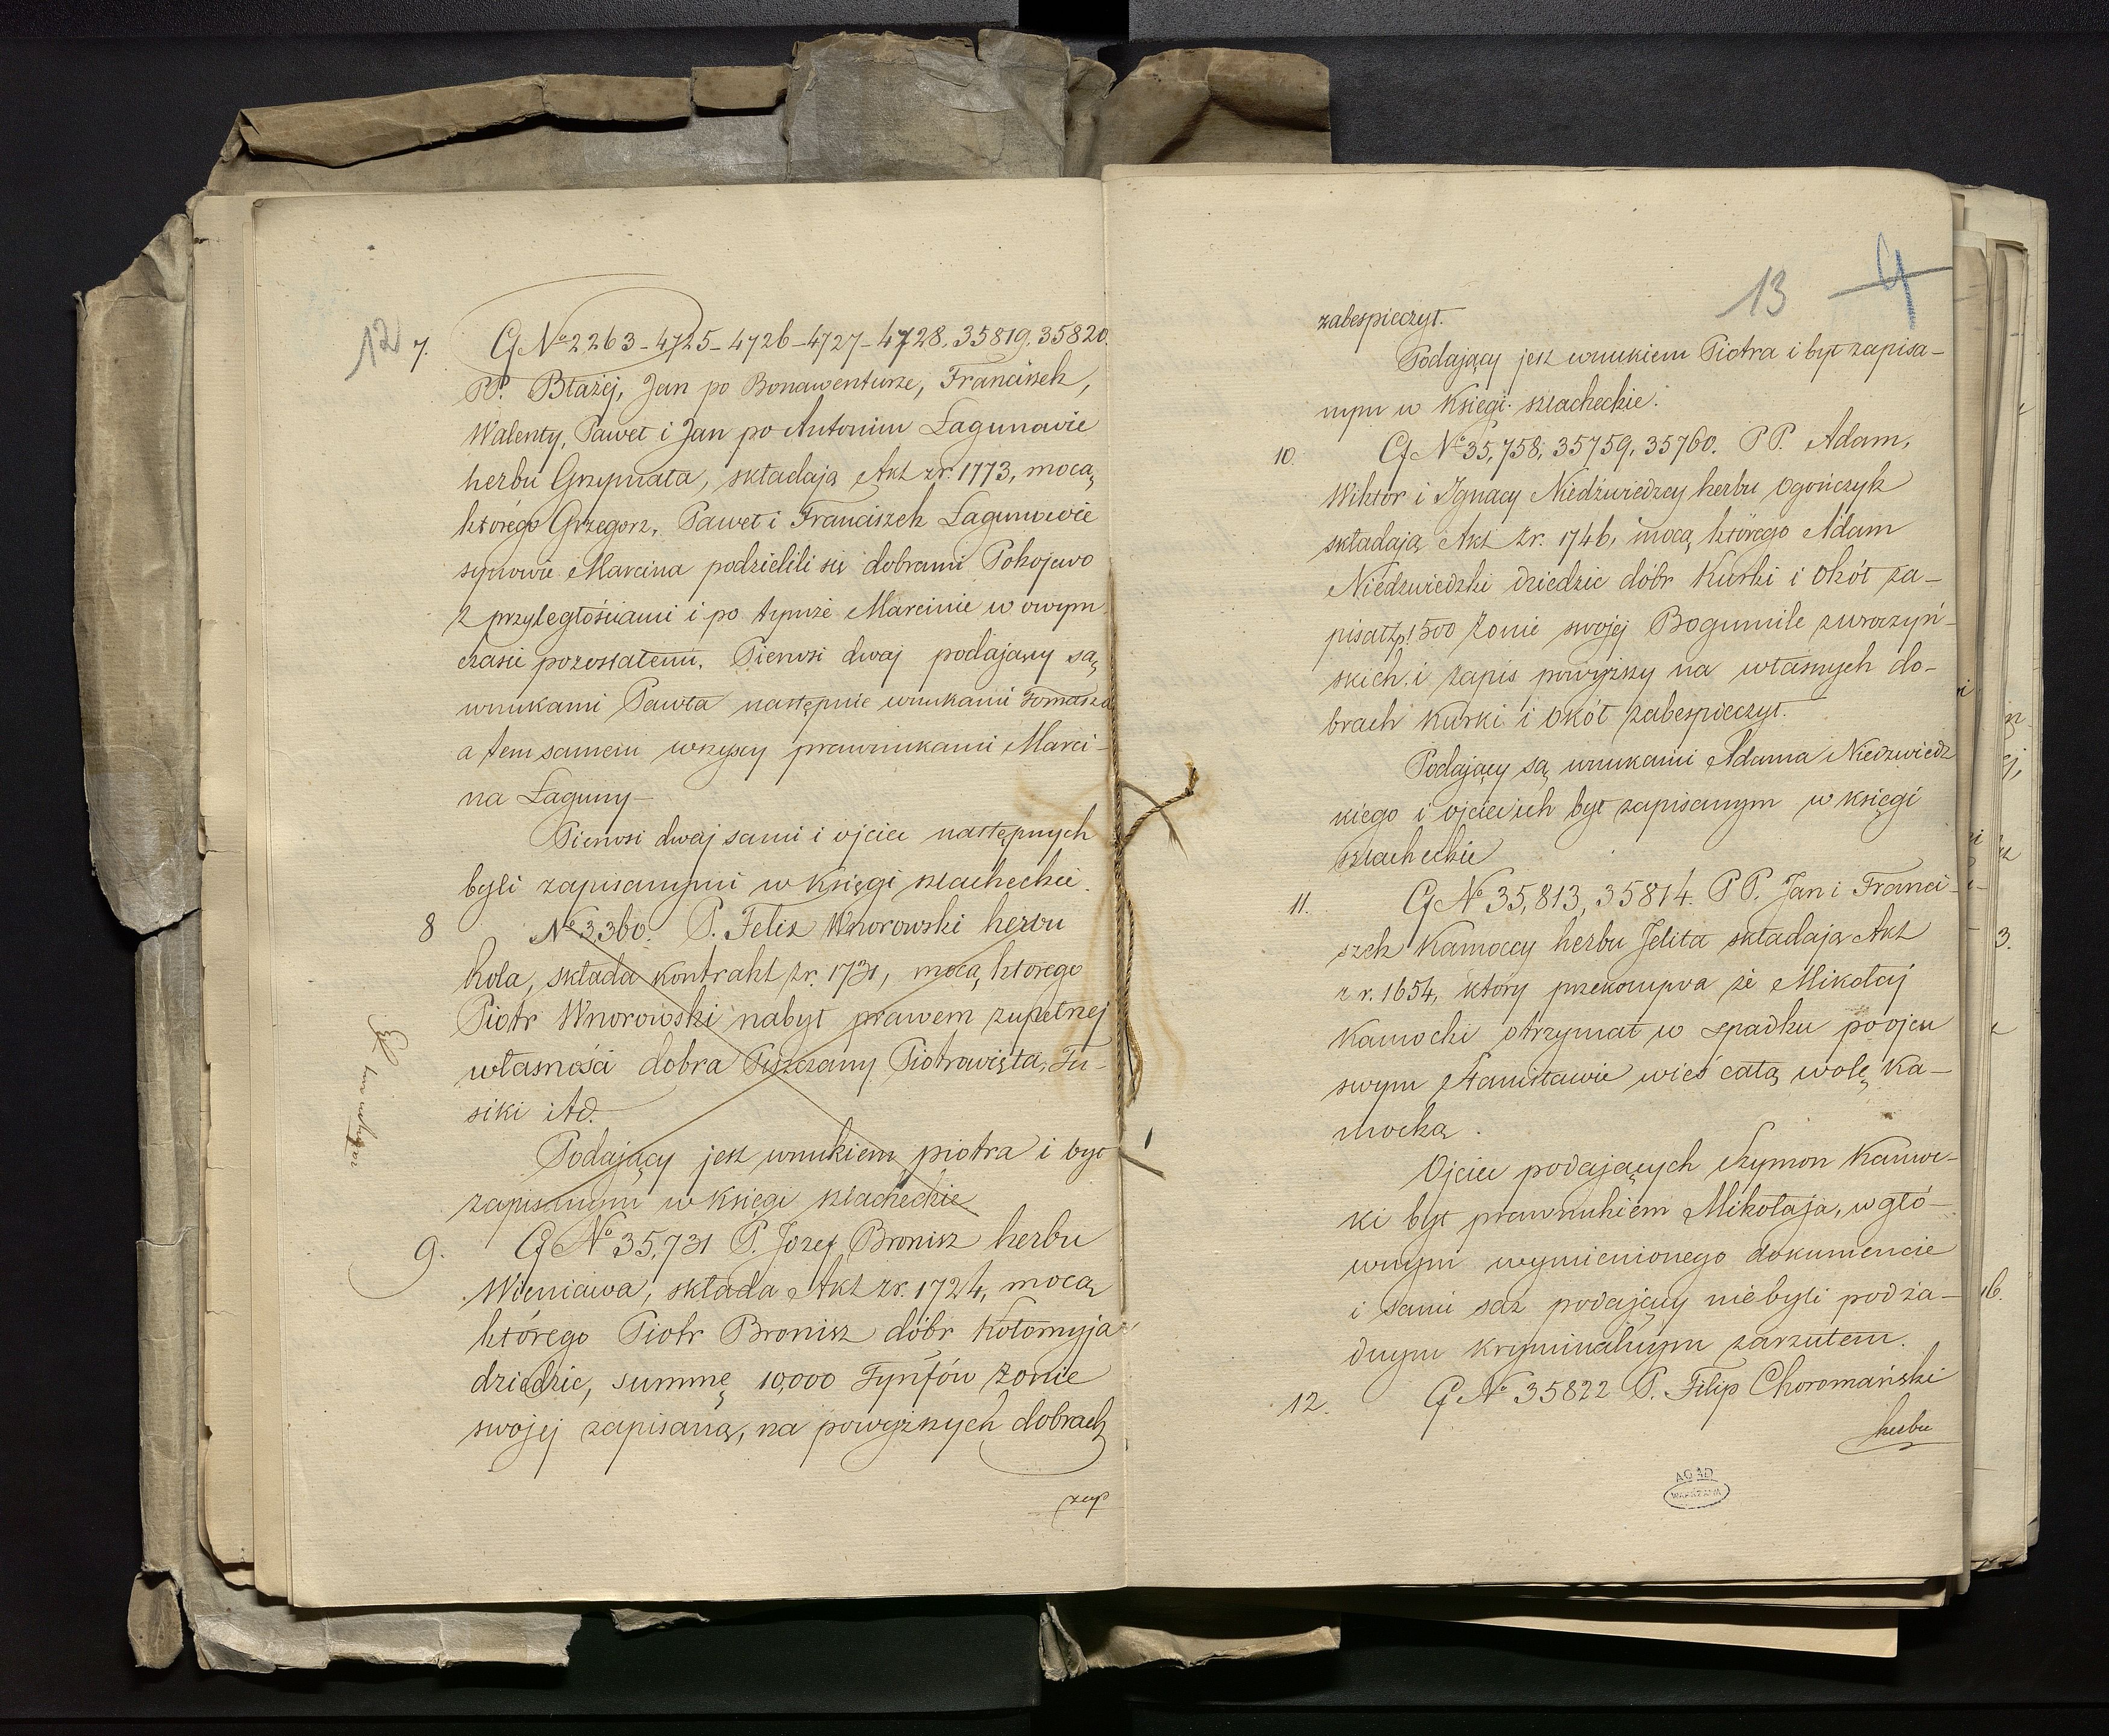 12
7. G N° 2263-4725-4726-4727-4728, 35819, 35820.
PP. Błażej, Jan po Bonawenturze, Franciszek,
Walenty, Paweł i Jan po Antonim Lagunowie
herbu Grzymała, składają Akt z r. 1773, mocą
którego Grzegorz, Paweł i Franciszek Lagunowie
synowie Marcina podzielili się dobrami Pokojewo
z przyległościami i po tymże Marcinie w owym
czasie pozostałemi. Pierwsi dwaj podający są
wnukami Pawła następnie wnukami Tomasza
a tem samem wszyscy prawnukami Marci-
na Łaguny-
Pierwsi dwaj sami i ojciec następnych
byli zapisanymi w Księgi szlacheckie.
8 N° 3,360. P. Felix Wnorowski herbu
Kola, składa kontrakt z r. 1731, mocą którego
Piotr Wnorowski nabył prawem zupełnej
własności dobra Puszczany Piotrawięta, Tu-
siki itd.
Podający jest wnukiem piotra i był
zapisanym w Księgi szlacheckie
9. G N° 35,731 P. Jozef Bronisz herbu
Wieniawa, składa Akt z r. 1724, mocą
którego Piotr Bronisz dóbr Kołomyja
dziedzic, summę 10,000 Tynfów żonie
swojej zapisaną, na powyższych dobrach
zap
13 4
zabespieczył.
Podający jest wnukiem Piotra i był zapisa-
nym w Księgi szlacheckie.
10. G N° 35,758, 35759, 35760. PP. Adam,
Wiktor i Ignacy Niedźwiedzcy herbu Ogończyk
składają Akt z r. 1746, mocą którego Adam
Niedzwiedzki dziedzic dóbr Kurki i Okół za-
pisał złp. 1500 żonie swojej Bogumile zuroczyń-
skich i zapis powyższy na własnych do-
brach Kurki i Okół zabespieczył.
Podający są wnukami Adama Niedzwiedz
kiego i ojciec ich był zapisanym w księgi
szlacheckie
11. G N° 35,813, 35814. PP. Jan i Franci-
szek Kamoccy herbu Jelita składają Akt
z r. 1654, który przekonywa że Mikołaj
Kamocki otrzymał w spadku po ojcu
swym Stanisławie wieś całą wolę Ka-
mocką.
Ojciec podających Szymon Kamoc-
ki był prawnukiem Mikołaja, w głó-
wnym wymienionego dokumencie
i sami zaś podający niebyli pod ża-
dnym kryminalnym zarzutem.
12. G N° 35822 P. Filip Choromański
herbu
AGAD
WARSZAWA